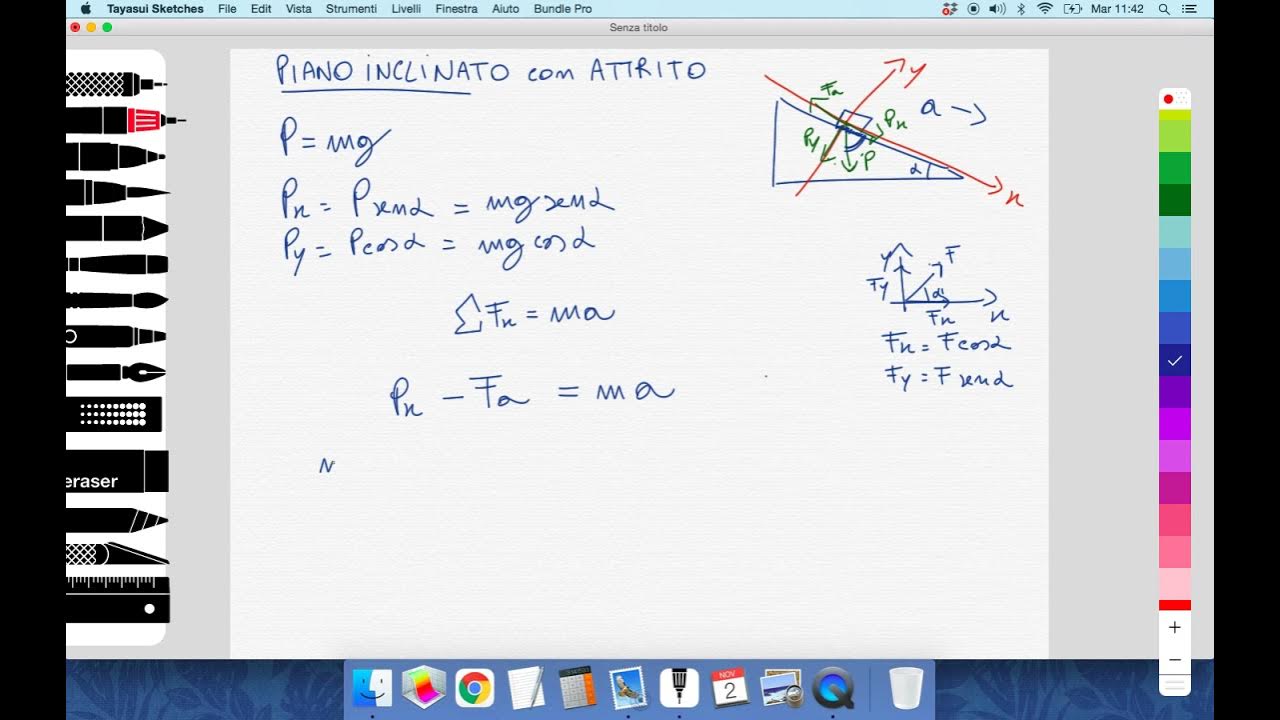 Tayasui Sketches File Edit Vista Strumenti Livelli Finestra Aiuto Bundle Pro Mar 11:42
Senza titolo
PIANO INCLINATO con ATTRITO
P = mg
Px = P senα = mg senα
Py = P cosα = mg cosα
∑Fx = ma
Px - Fa = ma
N
y
Fa
a →
Px
Py
P
α
x
y
F
Fy
α
Fx
x
Fx = F cosα
Fy = F senα
eraser
+
−
NOV
2